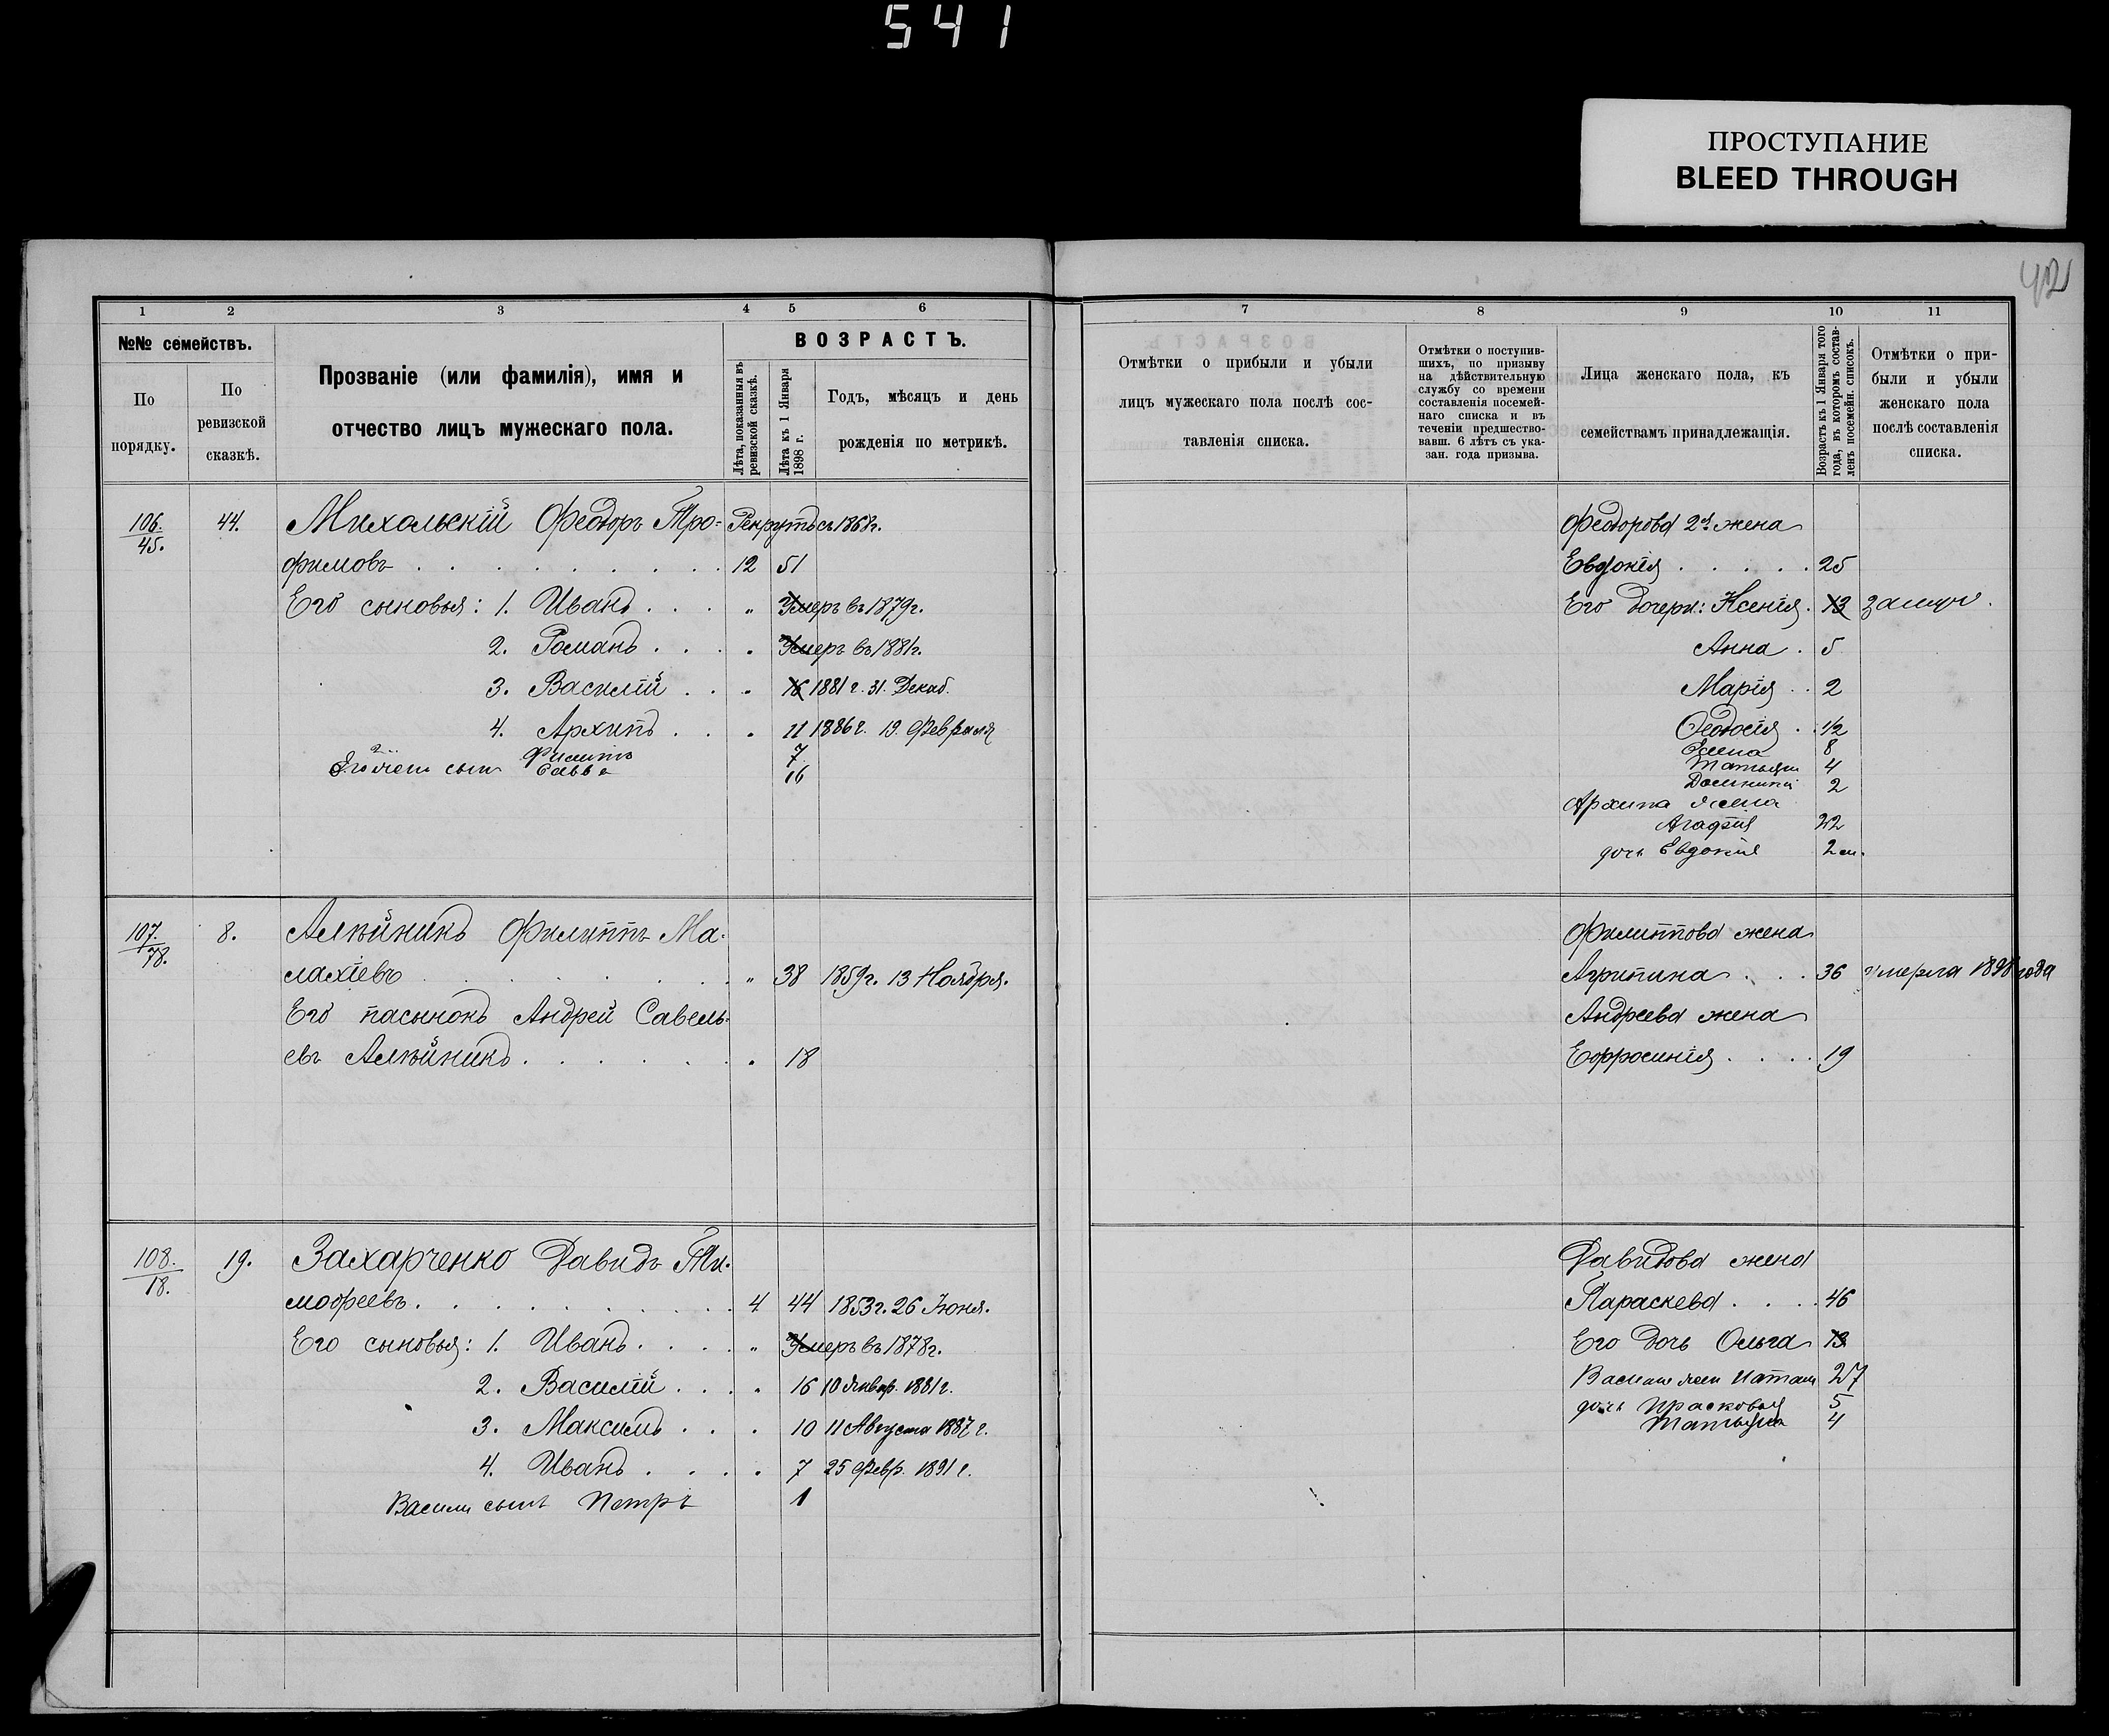 541
ПРОСТУПАНИЕ
BLEED THROUGH
42
1 2 3 4 5 6
№№ семействъ.
По порядку.
По ревизской сказкѣ.
Прозваніе (или фамилія), имя и
отчество лицъ мужескаго пола.
ВОЗРАСТЪ.
Лѣта, показанныя въ ревизской сказкѣ.
Лѣта къ 1 Января 1898 г.
Годъ, мѣсяцъ и день
рожденія по метрикѣ.
106. 45. 44. Михольскій Ѳеодоръ Тро- Рекрутъ съ 1868г.
фимовъ 12 51
Его сыновья: 1. Иванъ „ Умеръ въ 1879г.
2. Романъ „ Умеръ въ 1881г.
3. Василій „ 16 1881 г. 31. Декаб.
4. Архипъ „ 11 1886 г. 19. Февраля
Филипъ 7
сын Савва 16
107. 78. 8. Алѣйникъ Филиппъ Ма-
лахіевъ „ 38 1859г. 13 Ноября.
Его пасынокъ Андрей Савель-
евъ Алѣйникъ „ 18
108. 18. 19. Захарченко Давидъ Ти-
моѳеевъ 4 44 1853г. 26 Іюня.
Его сыновья: 1. Иванъ „ Умеръ въ 1878г.
2. Василій „ 16 10 Январ. 1881г.
3. Максимъ „ 10 11 Августа 1887 г.
4. Иванъ „ 7 25 Февр. 1891 г.
Васили сынъ Петръ 1
7 8 9 10 11
Отмѣтки о прибыли и убыли
лицъ мужескаго пола послѣ сос-
тавленія списка.
Отмѣтки о поступив-
шихъ, по призыву
на дѣйствительную
службу со времени
составленія посемей-
наго списка и въ
теченіи предшество-
вавш. 6 лѣтъ съ ука-
зан. года призыва.
Лица женскаго пола, къ
семействамъ принадлежащія.
Возрастъ къ 1 Января того
года, въ которомъ состав-
ленъ посемейн. списокъ.
Отмѣтки о при-
были и убыли
женскаго пола
послѣ составленія
списка.
Ѳеодорова 2я жена
Евдокія 25
Его дочери: Ксенія 13 замуж.
Анна 5
Марія 2
Ѳеодосія 1/2
Елена 8
Татьяна 4
Домникія 2
Архипа жена
Агафія 22
дочь Евдокія 2 м.
Филиппова жена
Агрипина 36 умерла 1898 года
Андреева жена
Ефросинія 19
Давидова жена
Параскева 46
Его дочь Ольга 13
Васили жен Натал 27
дочь Прасковья 5
Татьяна 4